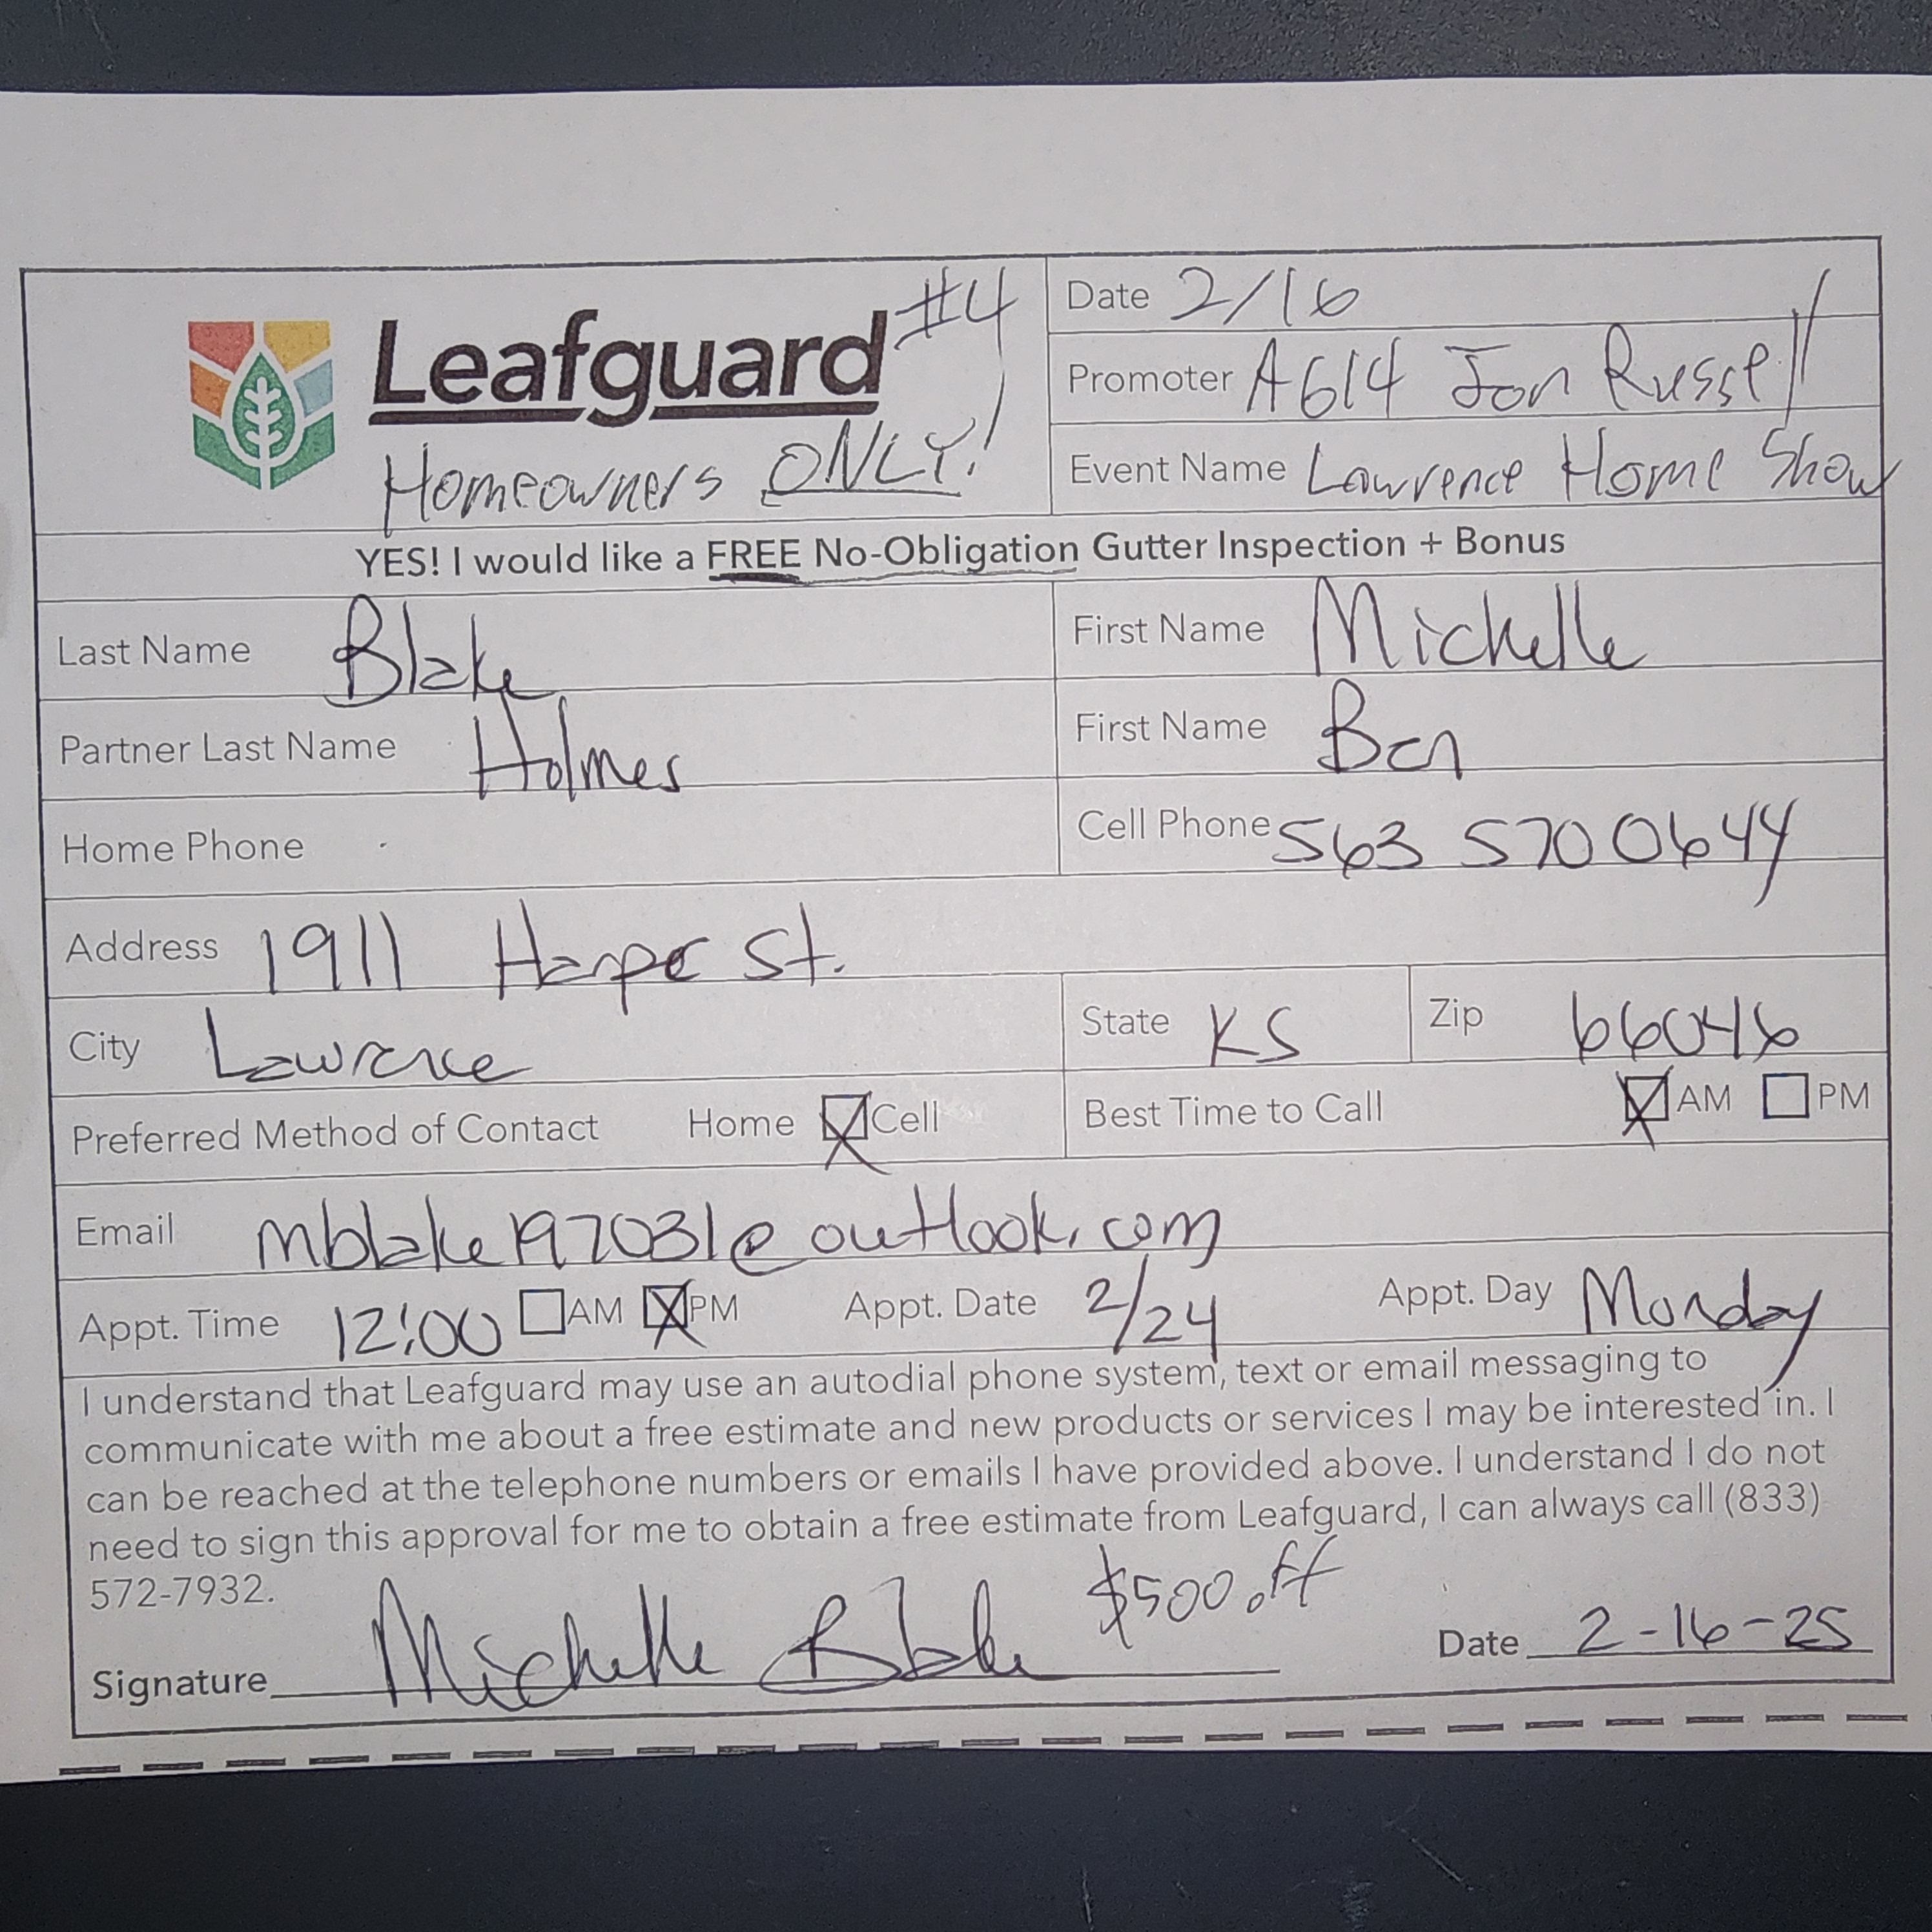 Leafguard #4
Homeowners ONLY!
Date 2/16
Promoter A614 Jon Russell
Event Name Lawrence Home Show
YES! I would like a FREE No-Obligation Gutter Inspection + Bonus
Last Name Blake
First Name Michelle
Partner Last Name Holmes
First Name Ben
Home Phone
Cell Phone 563 570 0644
Address 1911 Harper St.
City Lawrence
State KS
Zip 66046
Preferred Method of Contact Home Cell
Best Time to Call AM PM
Email mblake197031@outlook.com
Appt. Time 12:00 AM PM Appt. Date 2/24 Appt. Day Monday
I understand that Leafguard may use an autodial phone system, text or email messaging to
communicate with me about a free estimate and new products or services I may be interested in. I
can be reached at the telephone numbers or emails I have provided above. I understand I do not
need to sign this approval for me to obtain a free estimate from Leafguard, I can always call (833)
572-7932.
$500 off
Signature Michelle Blake
Date 2-16-25